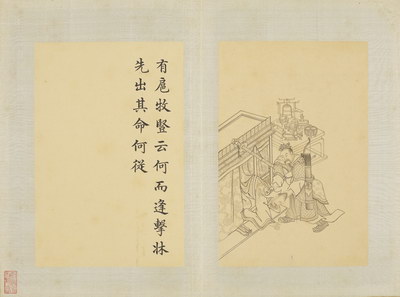 有扈牧豎云何而逢擊牀
先出其命何從